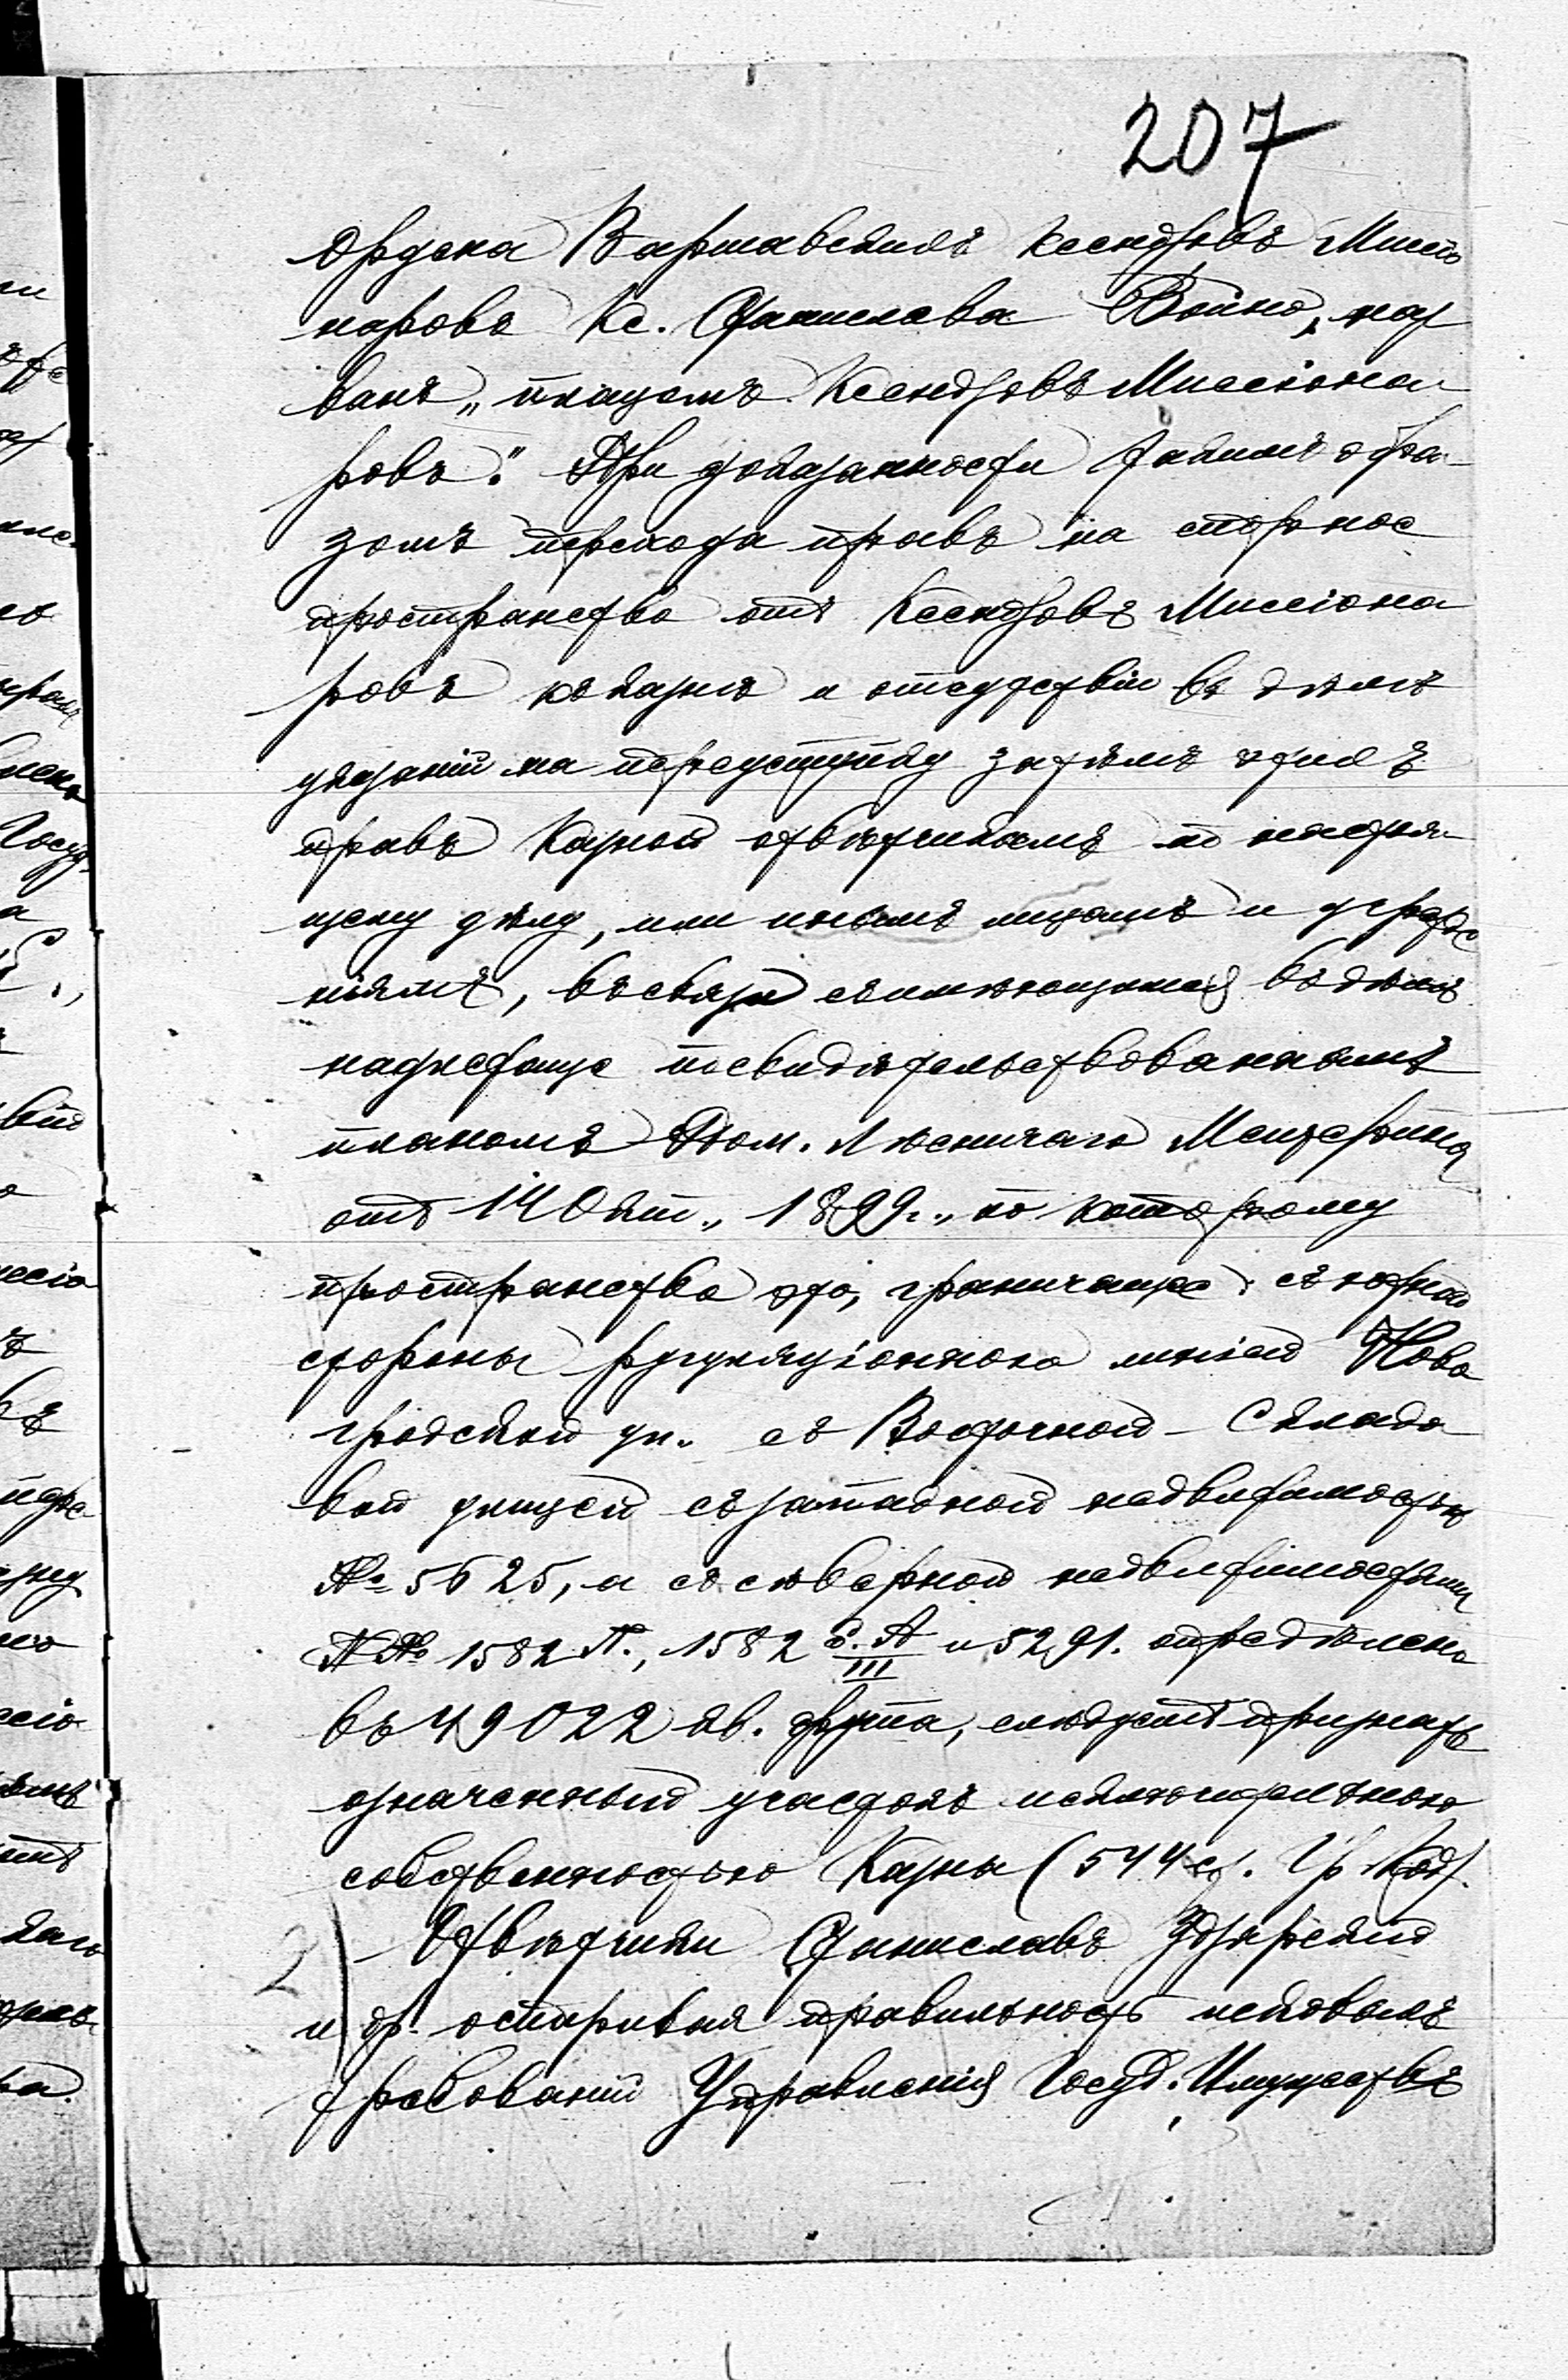 207
Ордена Варшавскихъ Ксендзовъ Миссіо
наровъ Кс. Станислава Война, наз
ванъ „плацомъ Ксендзовъ Миссіона-
ровъ". При доказанности такимъ обра-
зомъ перехода правъ на спорное
пространство отъ Ксендзовъ Миссіона
ровъ къ казнѣ и отсутствіи въ дѣлѣ
указаній на переуступку затѣмъ этихъ
правъ Казной отвѣтчикамъ по настоя-
щему дѣлу, или инымъ лицамъ и учрежде
ніямъ, въ связи съ имѣющимся въ дѣлѣ
надлежаще посвидѣтельствованнымъ
планомъ Лѣсничаго Мещерина
отъ 14 Окт. 1899 г., по которому
пространство это, граничащее съ южной
стороны регуляціонною линіей Ново
гродской ул. съ Восточной - Складо
вой улицей съ западной недвижимостью
№ 5625, а съ сѣверной недвижимостями
№№ 1582 Л., 1582 А III и 5291. опредѣлено
въ 49022 кв. фута, слѣдуетъ признать
означенный участокъ исключительною
собственностью Казны (544 ст. Гр. Код).
2) Отвѣтчики Станиславъ Здзярскій
и др. оспаривая правильность исковыхъ
требованій Управленія Госуд. Имуществъ